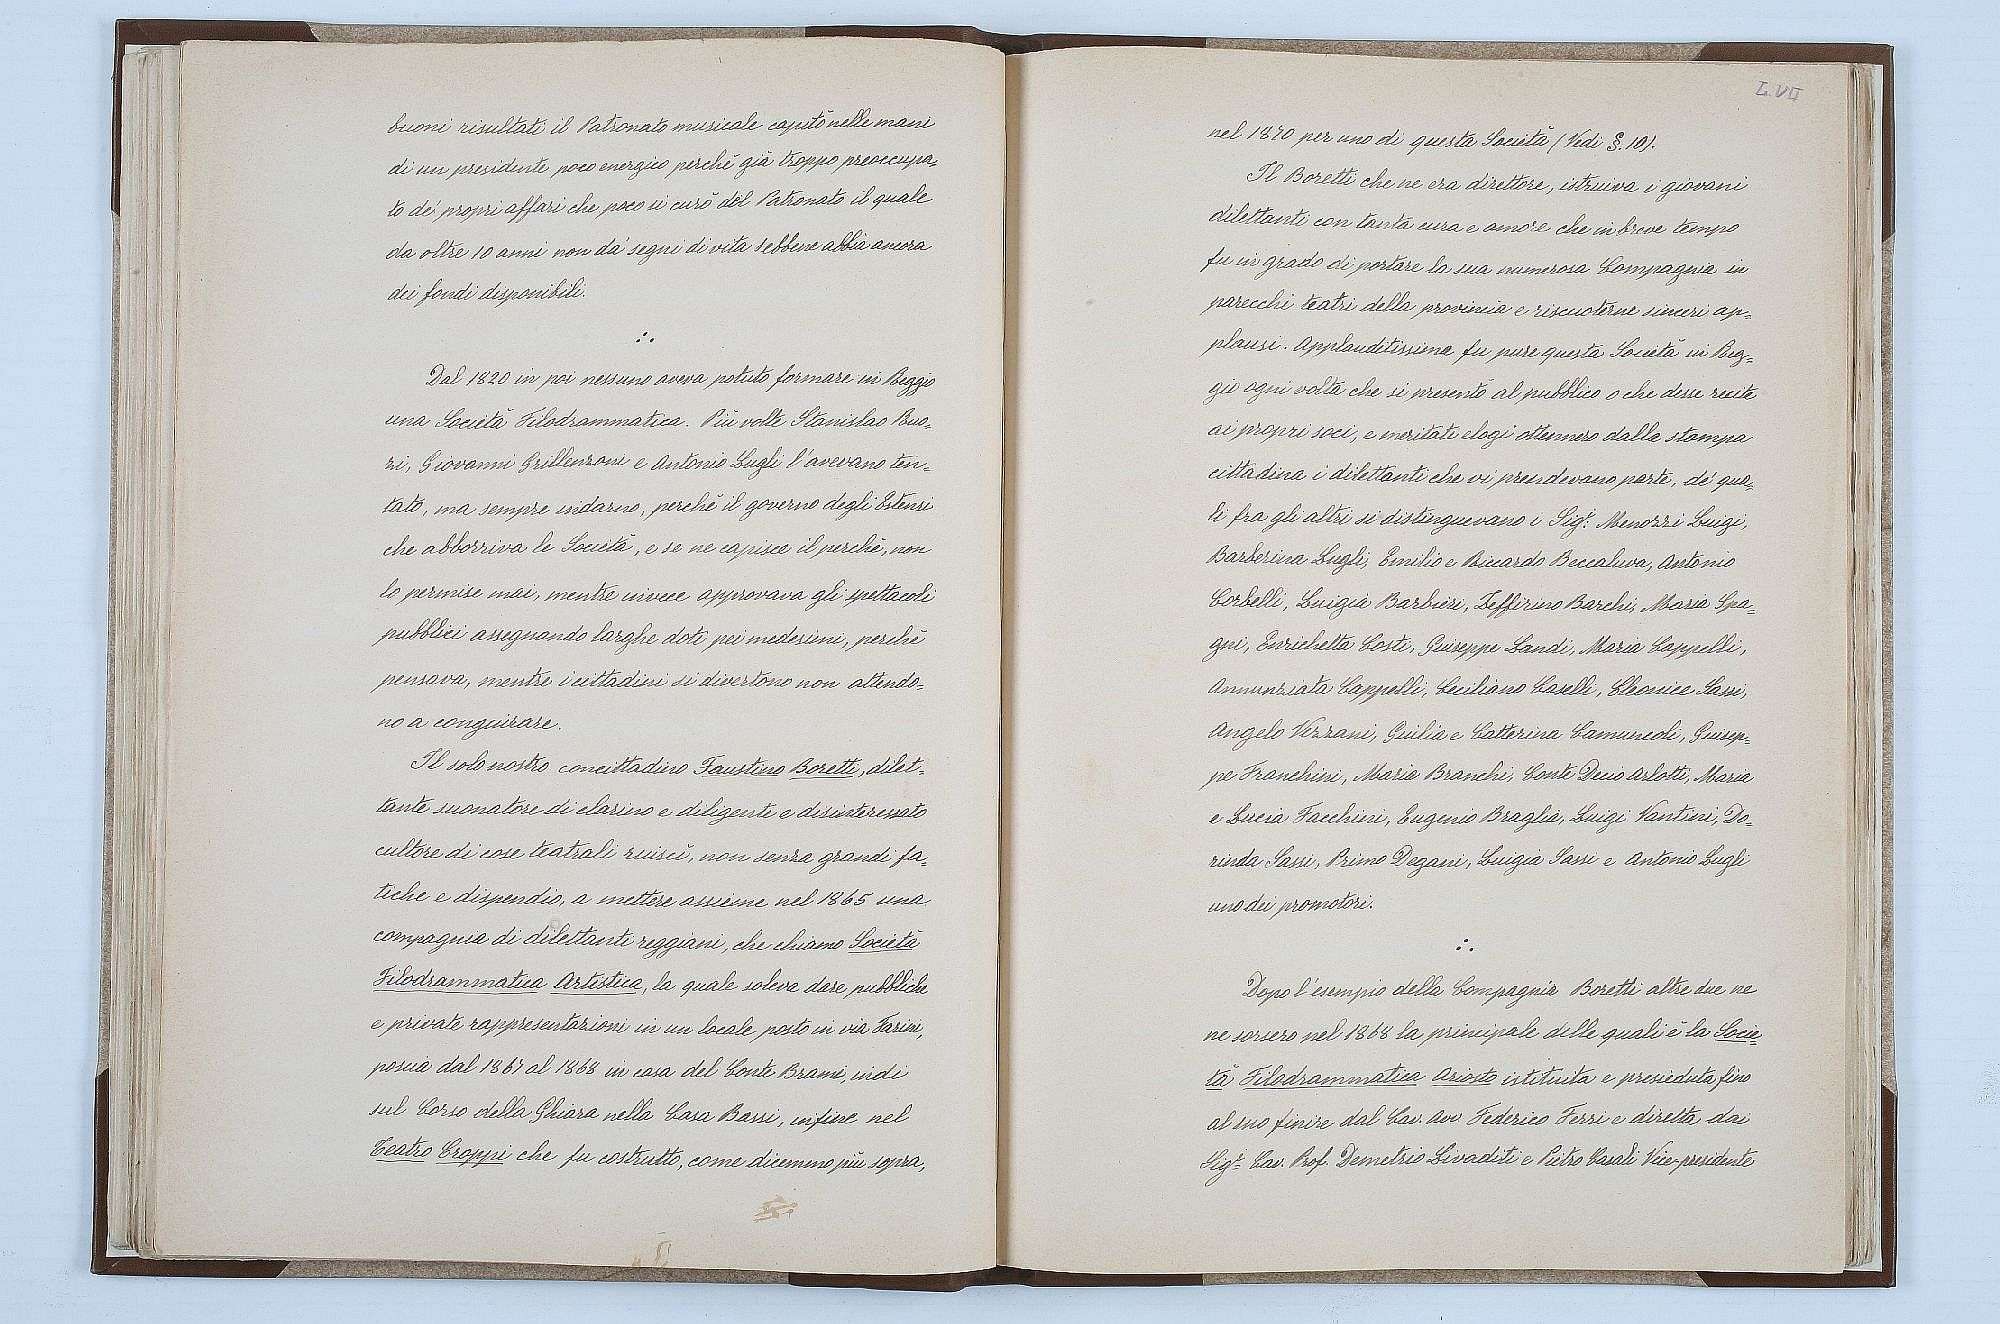 buoni risultati il Patronato musicale capitò nelle mani
di un presidente poco energico perchè già troppo preoccupa=
to de' propri affari che poco si curò del Patronato il quale
da oltre 10 anni non dà segni di vita sebbene abbia ancora
dei fondi disponibili.
Dal 1820 in poi nessuno aveva potuto formare in Reggio
una Società Filodrammatica. Più volte Stanislao Ruo=
zi, Giovanni Grillenzoni e Antonio Lugli l'avevano ten=
tato, ma sempre indarno, perchè il governo degli Estensi
che abborriva le Società, e se ne capisce il perchè, non
lo permise mai, mentre invece approvava gli spettacoli
pubblici assegnando larghe doti pei medesimi, perchè
pensava, mentre i cittadini si divertono non attendo=
no a congiurare.
Il solo nostro concittadino Faustino Boretti, dilet=
tante suonatore di clarino e diligente e disinteressato
cultore di cose teatrali ruiscì, non senza grandi fa=
tiche e dispendio, a mettere assieme nel 1865 una
compagnia di dilettanti reggiani, che chiamo Società
Filodrammatica Artistica, la quale soleva dare pubbliche
e private rappresentazioni in un locale posto in via Farini,
poscia dal 1867 al 1868 in casa del Conte Brami, indi
sul Corso della Ghiara nella Casa Bassi, infine nel
Teatro Croppi che fu costrutto, come dicemmo più sopra,
L.VII
nel 1870 per uno di questa Società (Vedi §. 10).
Il Boretti che ne era direttore, istruiva i giovani
dilettanti con tanta cura e amore che in breve tempo
fu in grado di portare la sua numerosa Compagnia in
parecchi teatri della provincia e riscuoterne sinceri ap=
plausi. Applauditissima fu pure questa Società in Reg=
gio ogni volta che si presentò al pubblico o che desse recite
ai propri soci, e meritati elogi ottennero dalla stampa
cittadina i dilettanti che vi prendevano parte, de' qua=
li fra gli altri si distinguevano i Sigr. Menozzi Luigi,
Barberina Lugli, Emilio e Riccardo Beccaluva, Antonio
Corbelli, Luigia Barbieri, Zeffirino Barchi, Maria Spa=
gni, Enrichetta Costi, Giuseppe Landi, Maria Cappelli,
Annunziata Cappelli, Ceciliano Caselli, Cleonice Sassi,
Angelo Vezzani, Giulia e Catterina Camuncoli, Giusep=
pe Franchini, Maria Branchi, Conte Decio Arlotti, Maria
e Lucia Facchini, Eugenio Braglia, Luigi Vantini, Do=
rinda Sassi, Primo Degani, Luigia Sassi e Antonio Lugli
uno dei promotori.
Dopo l'esempio della Compagnia Boretti altre due ne
ne sorsero nel 1868 la principale delle quali è la Socie=
tà Filodrammatica Ariosto istituita e presieduta fino
al suo finire dal Cav. Avv. Federico Ferri e diretta dai
Sigr. Cav. Prof. Demetrio Livaditi e Pietro Casali Vice-presidente